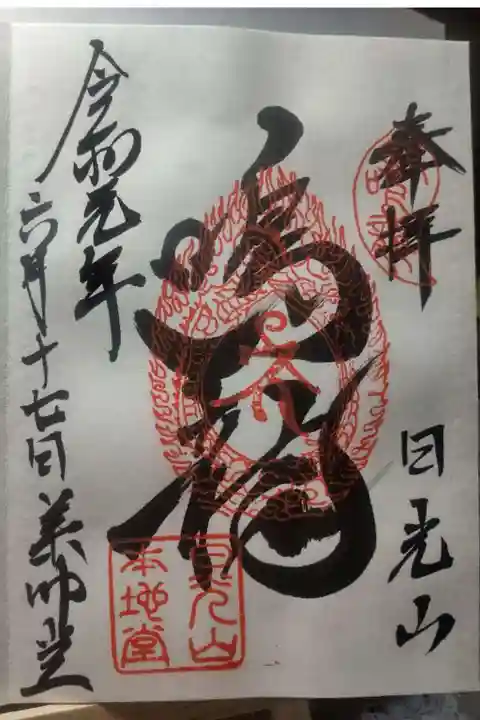 奉拝
日光山
鳴龍
令和元年
六月十七日薬師堂
日光山
本地堂